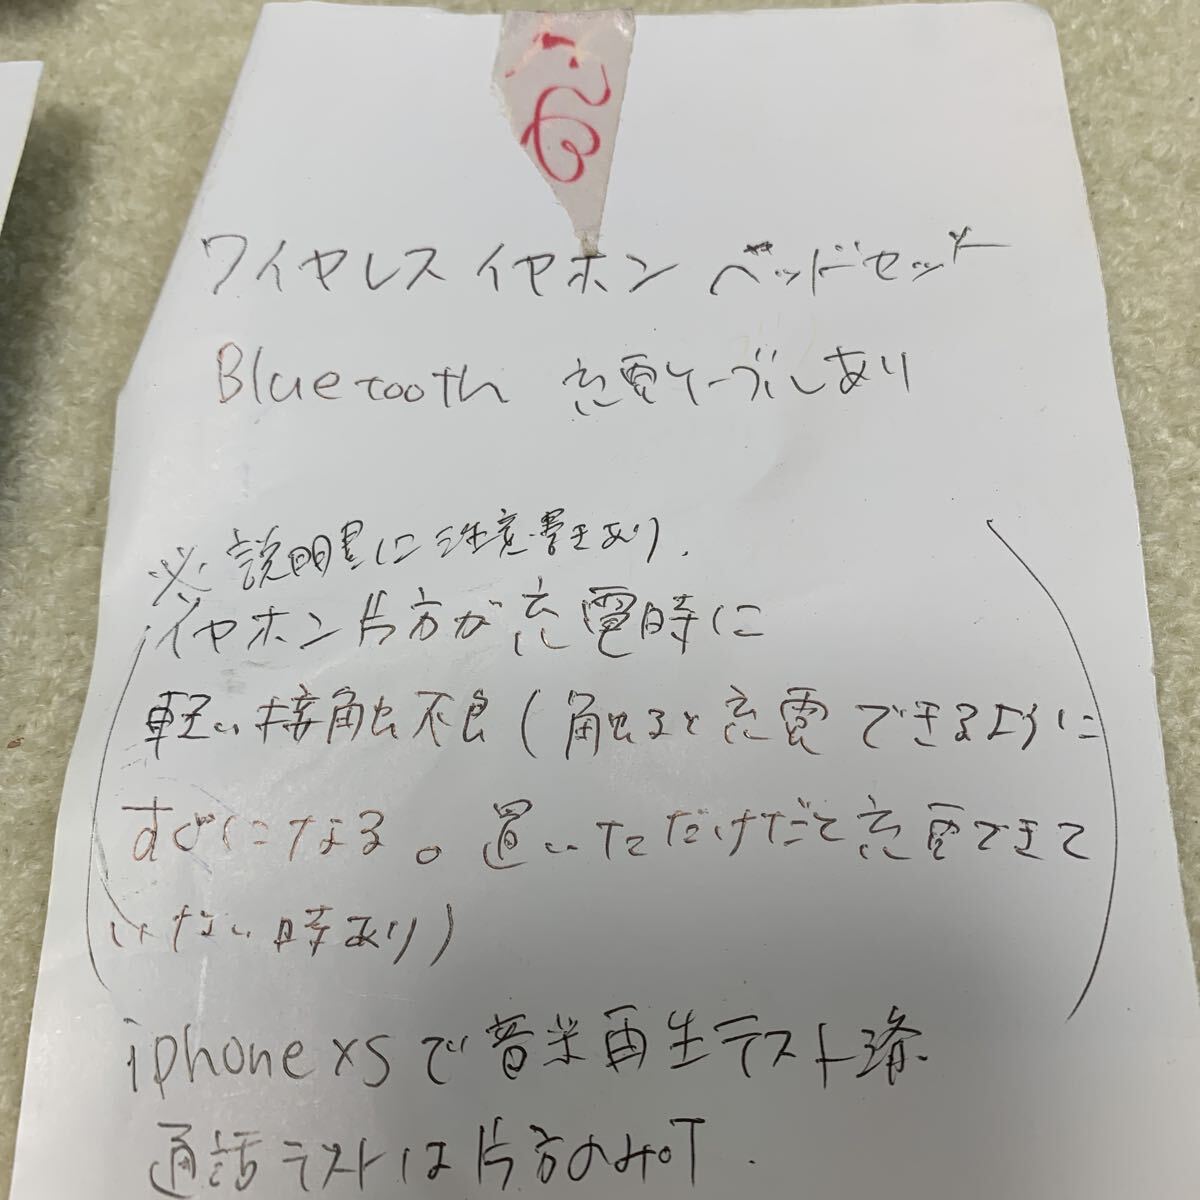 ワイヤレスイヤホン ヘッドセット
Bluetooth 充電ケーブルあり
※説明書に注意書きあり.
イヤホン片方が充電時に
軽い接触不良(触ると充電できるように
すぐになる。置いただけだと充電できて
いない時あり)
iphone xsで音楽再生テスト済.
通話テストは片方のみOT.